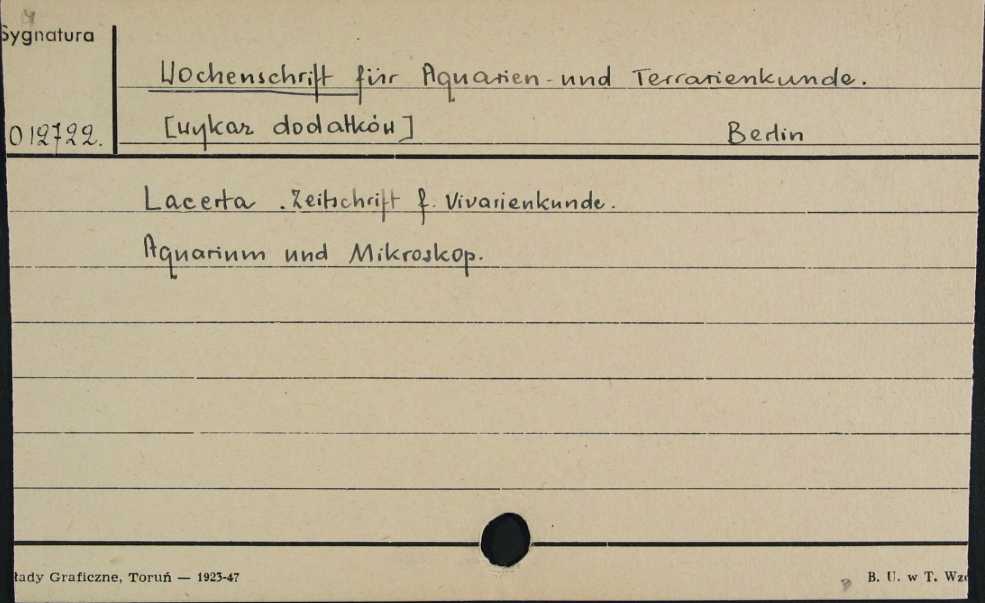 Sygnatura
Wochenschrift für Aquarien- und Terrarienkunde.
[wykaz dodatków] Berlin
012722.
Lacerta. Zeitschrift f. Vivarienkunde.
Aquarium und Mikroskop.
łady Graficzne, Toruń — 1923-47
B. U. w T. Wzó